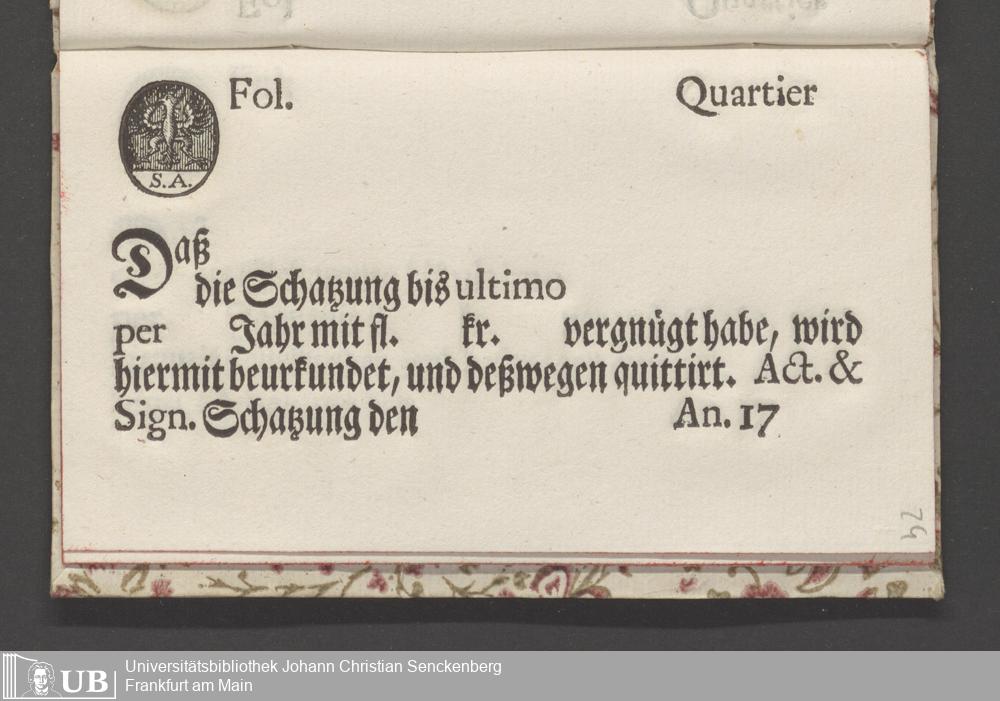 Fol. Quartier
S.A.
Daß
die Schatzung bis ultimo
per Jahr mit fl. kr. vergnügt habe, wird
hiermit beurkundet, und deßwegen quittirt. Act. &
Sign. Schatzung den An. 17
74
UB
Universitätsbibliothek Johann Christian Senckenberg
Frankfurt am Main